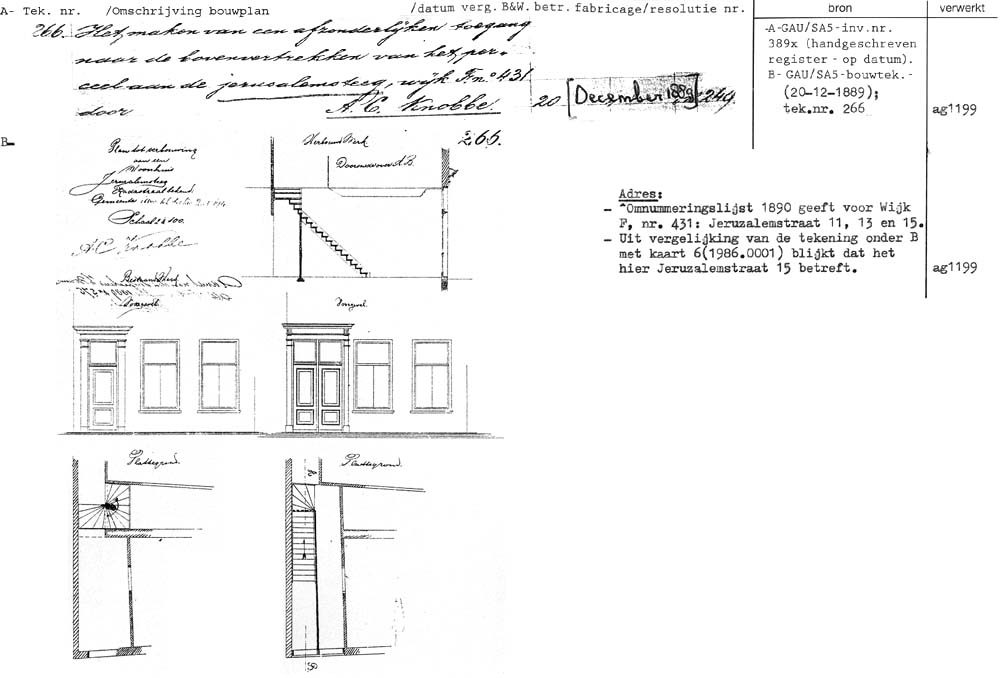 A- Tek. nr. /Omschrijving bouwplan /datum verg. B&W. betr. fabricage/resolutie nr. bron verwerkt
266. Het maken van een afzonderlijken toegang
naar de bovenvertrekken van het per-
ceel aan de jerusalemsteeg, wijk F n° 431
door A. C. Knobbe 20 [December 1889] 249.
-A-GAU/SA5-inv.nr.
389x (handgeschreven
register - op datum).
B- GAU/SA5-bouwtek.-
(20-12-1889);
tek.nr. 266
ag1199
B-
266.
Plan tot verbouwing
aan een
Woonhuis
Jerusalemsteeg
Gemeente
Schaal 1 à 100.
A C Knobbe
Verbouwd Werk
Doorsnede over A.B.
Adres:
- ^Omnummeringslijst 1890 geeft voor Wijk
F, nr. 431: Jeruzalemstraat 11, 13 en 15.
- Uit vergelijking van de tekening onder B
met kaart 6(1986.0001) blijkt dat het
hier Jeruzalemstraat 15 betreft.
ag1199
Bestaand Werk
Voorgevel
Voorgevel
Plattegrond
Plattegrond